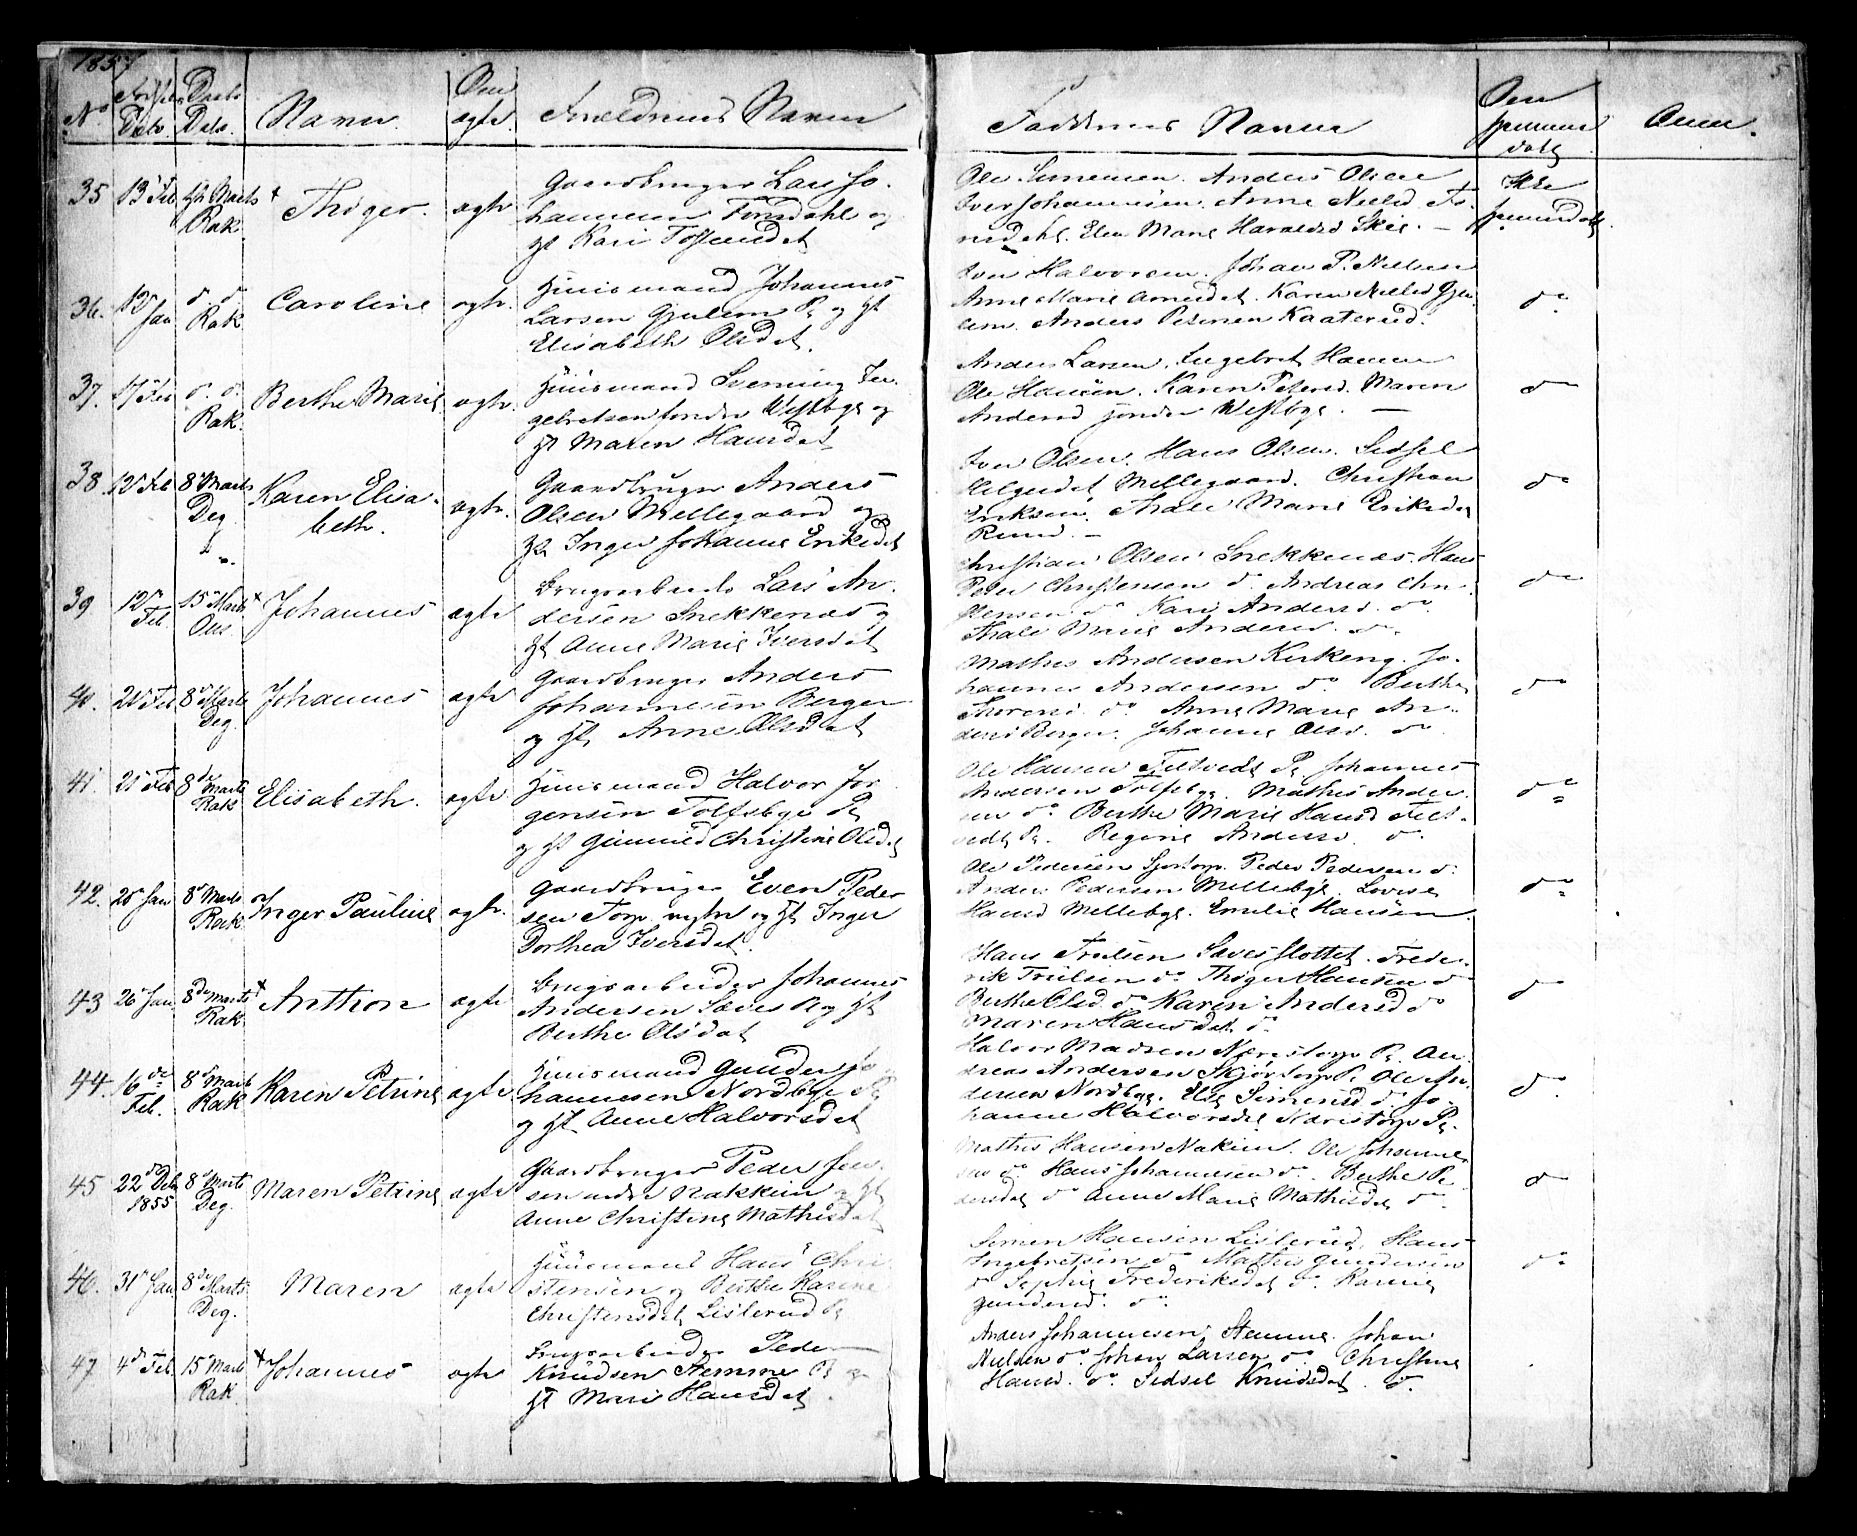 1857
No
Fødsels Dato.
Daabs Dato.
Navn.
Om ægte.
Forældrenes Navne
Faddernes Navne
Om hjemmedøbt
Anm.
5
35
13 Feb
Marts Rak
Thøger.
ægte
Gaardbruger Lars Jo-
hannesen og
Kari
Ole Simensen. Anders Olsen
Iver Johannesen. Anne Nielsd.
Elen Marie Haraldsd Skie. —
Ikke
hjemmedøbt.
36.
Jan
do do Rak
Caroline
ægte.
Huusmand Johannes
Larsen Gjulem Pl og H
Elisabeth Olsdat.
Iver Halvorsen. Johan P. Nielsen
Anne Marie Karen Nielsd Gju-
lem. Anders Petersen Kaaterud.
do
37.
17 Feb
do do Rak.
Berthe Marie
ægte.
Huusmand Svenning In-
gebretsen søndre Westbye og
H Maren Hansdat
Anders Larsen. Ingebret Hansen
Ole Hansen. Karen Petersd. Maren
Andersd søndre Westbye. —
do
38
12 Feb
8 Marts Deg
Karen Elisa-
beth.
ægte.
Gaardbruger Anders
Olsen Mellegaard og
H Inger Johanne Eriksdat
Iver Olsen. Hans Olsen. Sidsel
Helgesdat Mellegaard. Christian
Eriksen. Thale Marie Eriksdat
Rund. —
do
39
12 Feb.
15 Marts Ous.
Johannes
ægte
Brugsarbeider Lars An-
dersen Snekkenæs og
H Anne Marie Iversdat
Christian Olsen Snekkenæs. Hans
Peter Christensen do Andreas Chri-
stensen do Kari Andersd. do.
Thale Marie Andersd. do.
do
40.
20 Feb
8 Marts Deg.
Johannes
ægte
Gaardbruger Anders
Johannesen Berger
og H Anne Olsdat
Mathis Andersen Kirkeng. Jo-
hannes Andersen do. Berthe
Thoresd. do. Anne Marie An-
dersd Berger. Johanne Olsd. do.
do
41.
21 Feb
8de Marts Rak
Elisabeth.
ægte.
Huusmand Halvor Jør
gensen Tolfsbye Pl
og H Gunnild Christine Olsdat
Ole Hansen Pl Johannes
Andersen Tolfsbye. Mathis Ander-
sen do Berthe Marie Hansd
Pl. Regine Andersd. do.
do
42.
20 Jan
8 Marts Rak
Inger Pauline
ægte.
Gaardbruger Even Peder
sen Torp og H Inger
Dorthea Iversdat.
Ole Pedersen Peder Pedersen do.
Anders Pedersen Mellebye. Lovise
Hansd Mellebye. Emilie Hansen.
do
43
26 Jan.
8de Marts Rak
Anthon
ægte
Brugsarbeider Johannes
Andersen Saves Pl og H
Berthe Olsdat
Hans Trulsen Saves slottet. Frede-
rik Trulsen do Thøger Hansen do
Berthe Olsd. do Karen Andersd do
Maren Hansdat. do.
do
44.
16de Feb.
8 Marts Rak
Karen Petrine
ægte.
Huusmand Gunder Jo-
hannesen Nordbye Pl
og H Anne Halvorsdat
Halvor Madsen Næristorp Pl. An-
dreas Andersen Skjørtorp Pl Ole An-
dersen Nordbye. Else Simensd do Jo-
hanne Halvorsdat Næristorp Pl.
do
45
22 Decbr
1855
8 Marts Deg.
Maren Petrine
ægte
Gaardbruger Peder Jen-
sen nedre Nakkim og H
Anne Christine Mathisdat
Mathis Hansen Nakim. Ole Johannes
sen do. Hans Johannesen do. Berthe Pe-
dersdat do Anne Marie Mathisdat do.
do
46.
31 Jan
8de Marts. Deg.
Maren
ægte
Huusmand Hans Chri
stensen og Berthe Karine
Christensdat Listerud Pl
Simen Hansen Listerud. Hans
Ingebretsen do Mathis Gundersen
do Sophie Frederiksdat do. Karine
Gundersd. do.
do
47.
4de Feb.
15 Marts Rak
Johannes
ægte
Brugsarbeider Peder
Knudsen Stemme Pl og
H Marie Hansdat.
Anders Johannesen Stemme. Johan
Nielsen do. Johan Larsen do. Christine
Hansd. do. Sidsel Knudsdat. do.